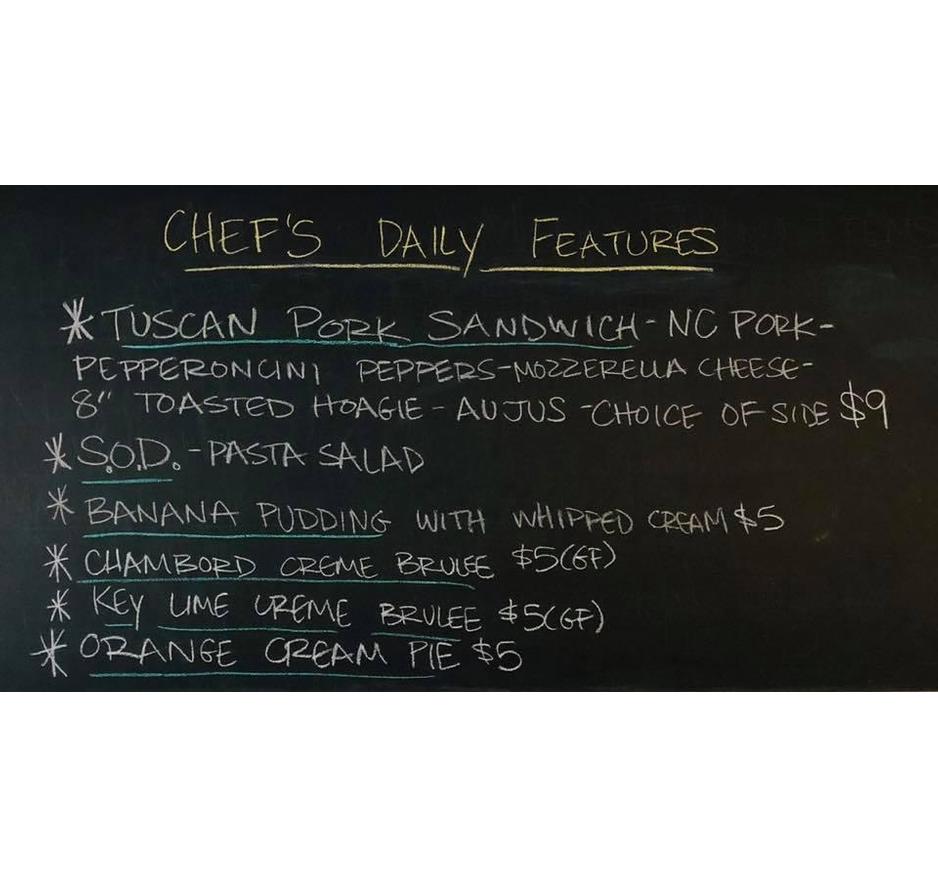 CHEF'S DAILY FEATURES
* TUSCAN PORK SANDWICH - NC PORK -
PEPPERONCINI PEPPERS - MOZZERELLA CHEESE -
8" TOASTED HOAGIE - AU JUS - CHOICE OF SIDE $9
* S.O.D. - PASTA SALAD
* BANANA PUDDING WITH WHIPPED CREAM $5
* CHAMBORD CREME BRULEE $5 (GF)
* KEY LIME CREME BRULEE $5 (GF)
* ORANGE CREAM PIE $5